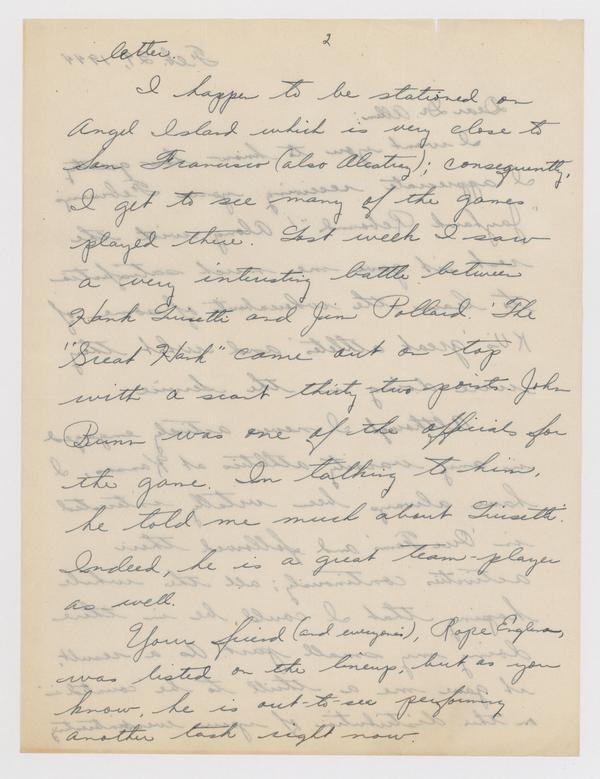 2
letter.
I happen to be stationed on
Angel Island which is very close to
San Francisco (also Alcatraz); consequently,
I get to see many of the games
played there. Last week I saw
a very interesting battle between
Hank Luisetti and Jim Pollard. The
"Great Hank" came out on top
with a scant thirty two points. John
Bunn was one of the officials for
the game. In talking to him,
he told me much about Luisetti.
Indeed, he is a great team-player
as well.
Your friend (and everyone's), Rope Engleman,
was listed on the lineup, but as you
know, he is out-to-sea performing
another task right now.